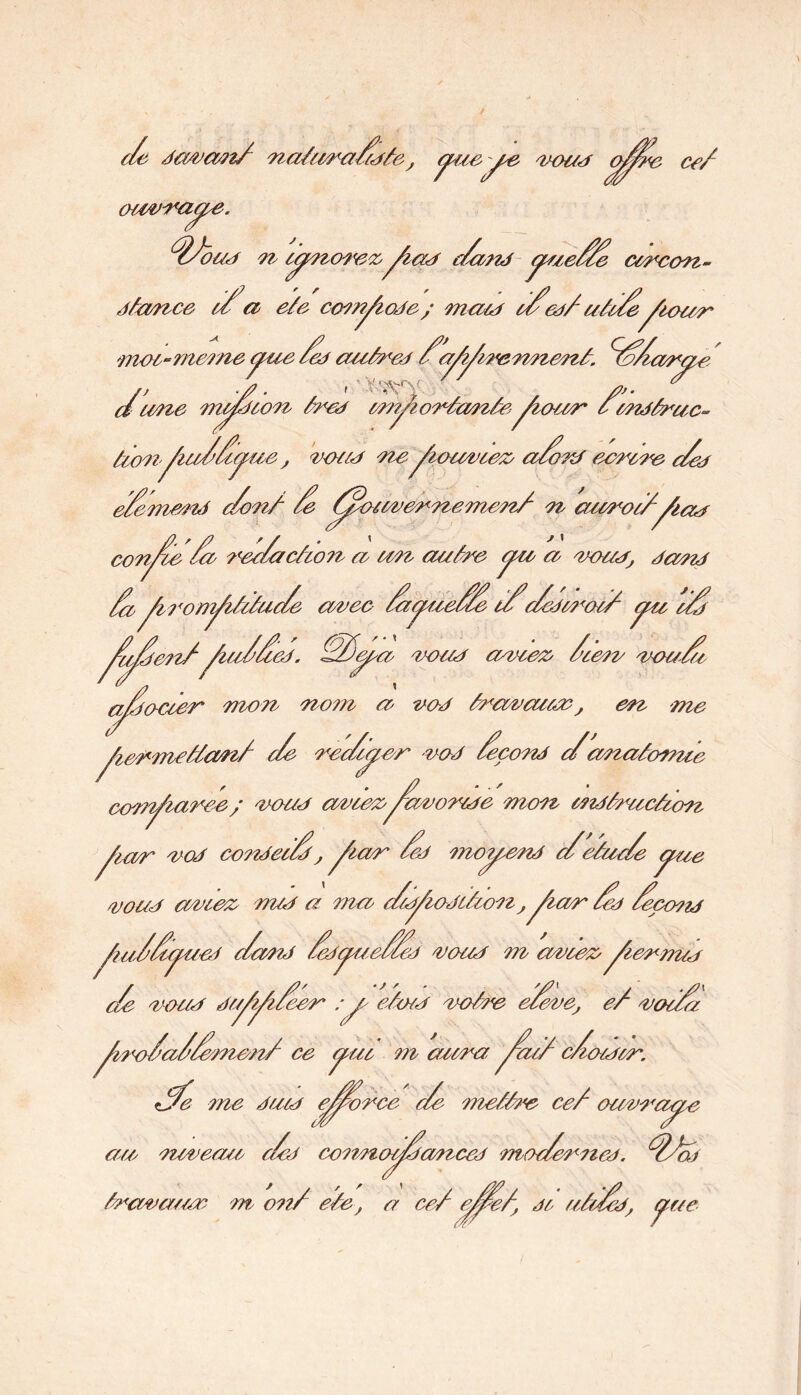 de savant naturaliste, que je vous offre cet
ouvrage.
Vous n'ignorez pas dans quelle circon-
stance il a été composé; mais il est utile pour
moi-même que les autres l'apprennent. Chargé
d'une mission très importante pour l'instruc-
tion publique, vous ne pouviez alors écrire des
élémens dont le Gouvernement n'auroit pas
confié la rédaction à un autre qu'à vous, sans
la promptitude avec laquelle il désiroit qu'ils
fussent publiés. Déjà vous aviez bien voulu
associer mon nom à vos travaux, en me
permettant de rédiger vos leçons d'anatomie
comparée; vous aviez favorisé mon instruction
par vos conseils, par les moyens d'étude que
vous aviez mis à ma disposition, par les leçons
publiques dans lesquelles vous m'aviez permis
de vous suppléer : j'étois votre élève, et voilà
probablement ce qui m'aura fait choisir.
Je me suis efforcé de mettre cet ouvrage
au niveau des connoissances modernes. Vos
travaux m'ont été, à cet effet, si utiles, que